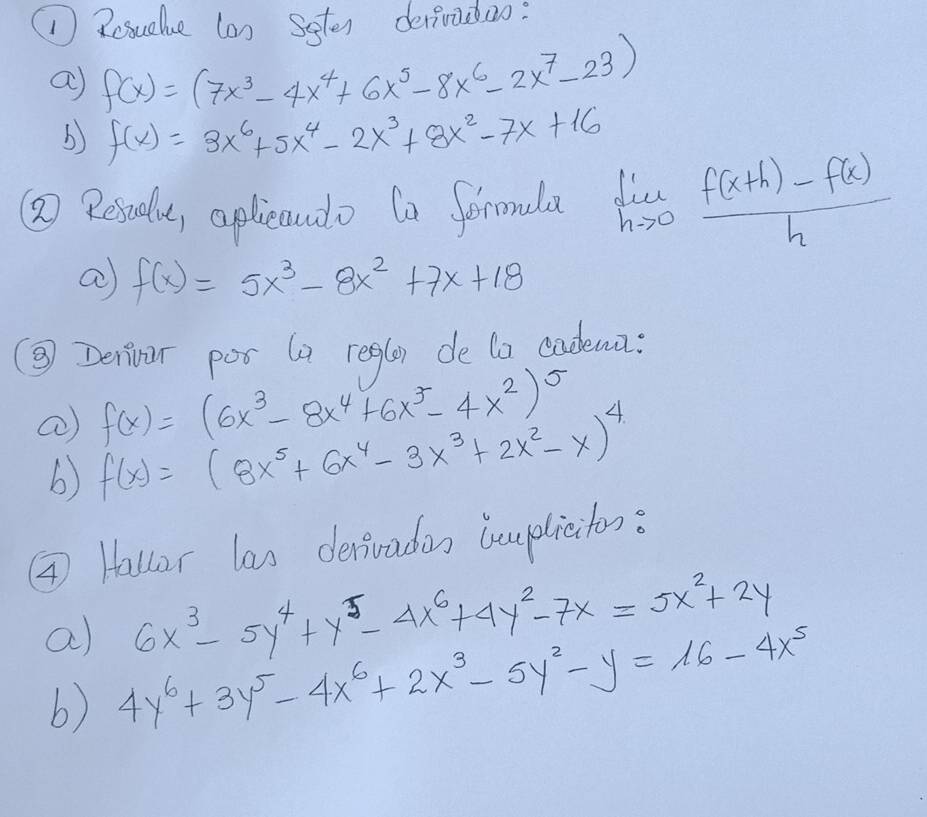 ① Resuelve las sgtes derivadas:
a) f(x) = (7x³ - 4x⁴ + 6x⁵ - 8x⁶ - 2x⁷ - 23)
b) f(x) = 3x⁶ + 5x⁴ - 2x³ + 8x² - 7x + 16
② Resuelve, aplicando la fórmula lim h->0 f(x+h) - f(x) / h
a) f(x) = 5x³ - 8x² + 7x + 18
③ Derivar por la regla de la cadena:
a) f(x) = (6x³ - 8x⁴ + 6x⁵ - 4x²)⁵
b) f(x) = (8x⁵ + 6x⁴ - 3x³ + 2x² - x)⁴
④ Hallar las derivadas implicitas:
a) 6x³ - 5y⁴ + y⁵ - 4x⁶ + 4y² - 7x = 5x² + 2y
b) 4y⁶ + 3y⁵ - 4x⁶ + 2x³ - 5y² - y = 16 - 4x⁵